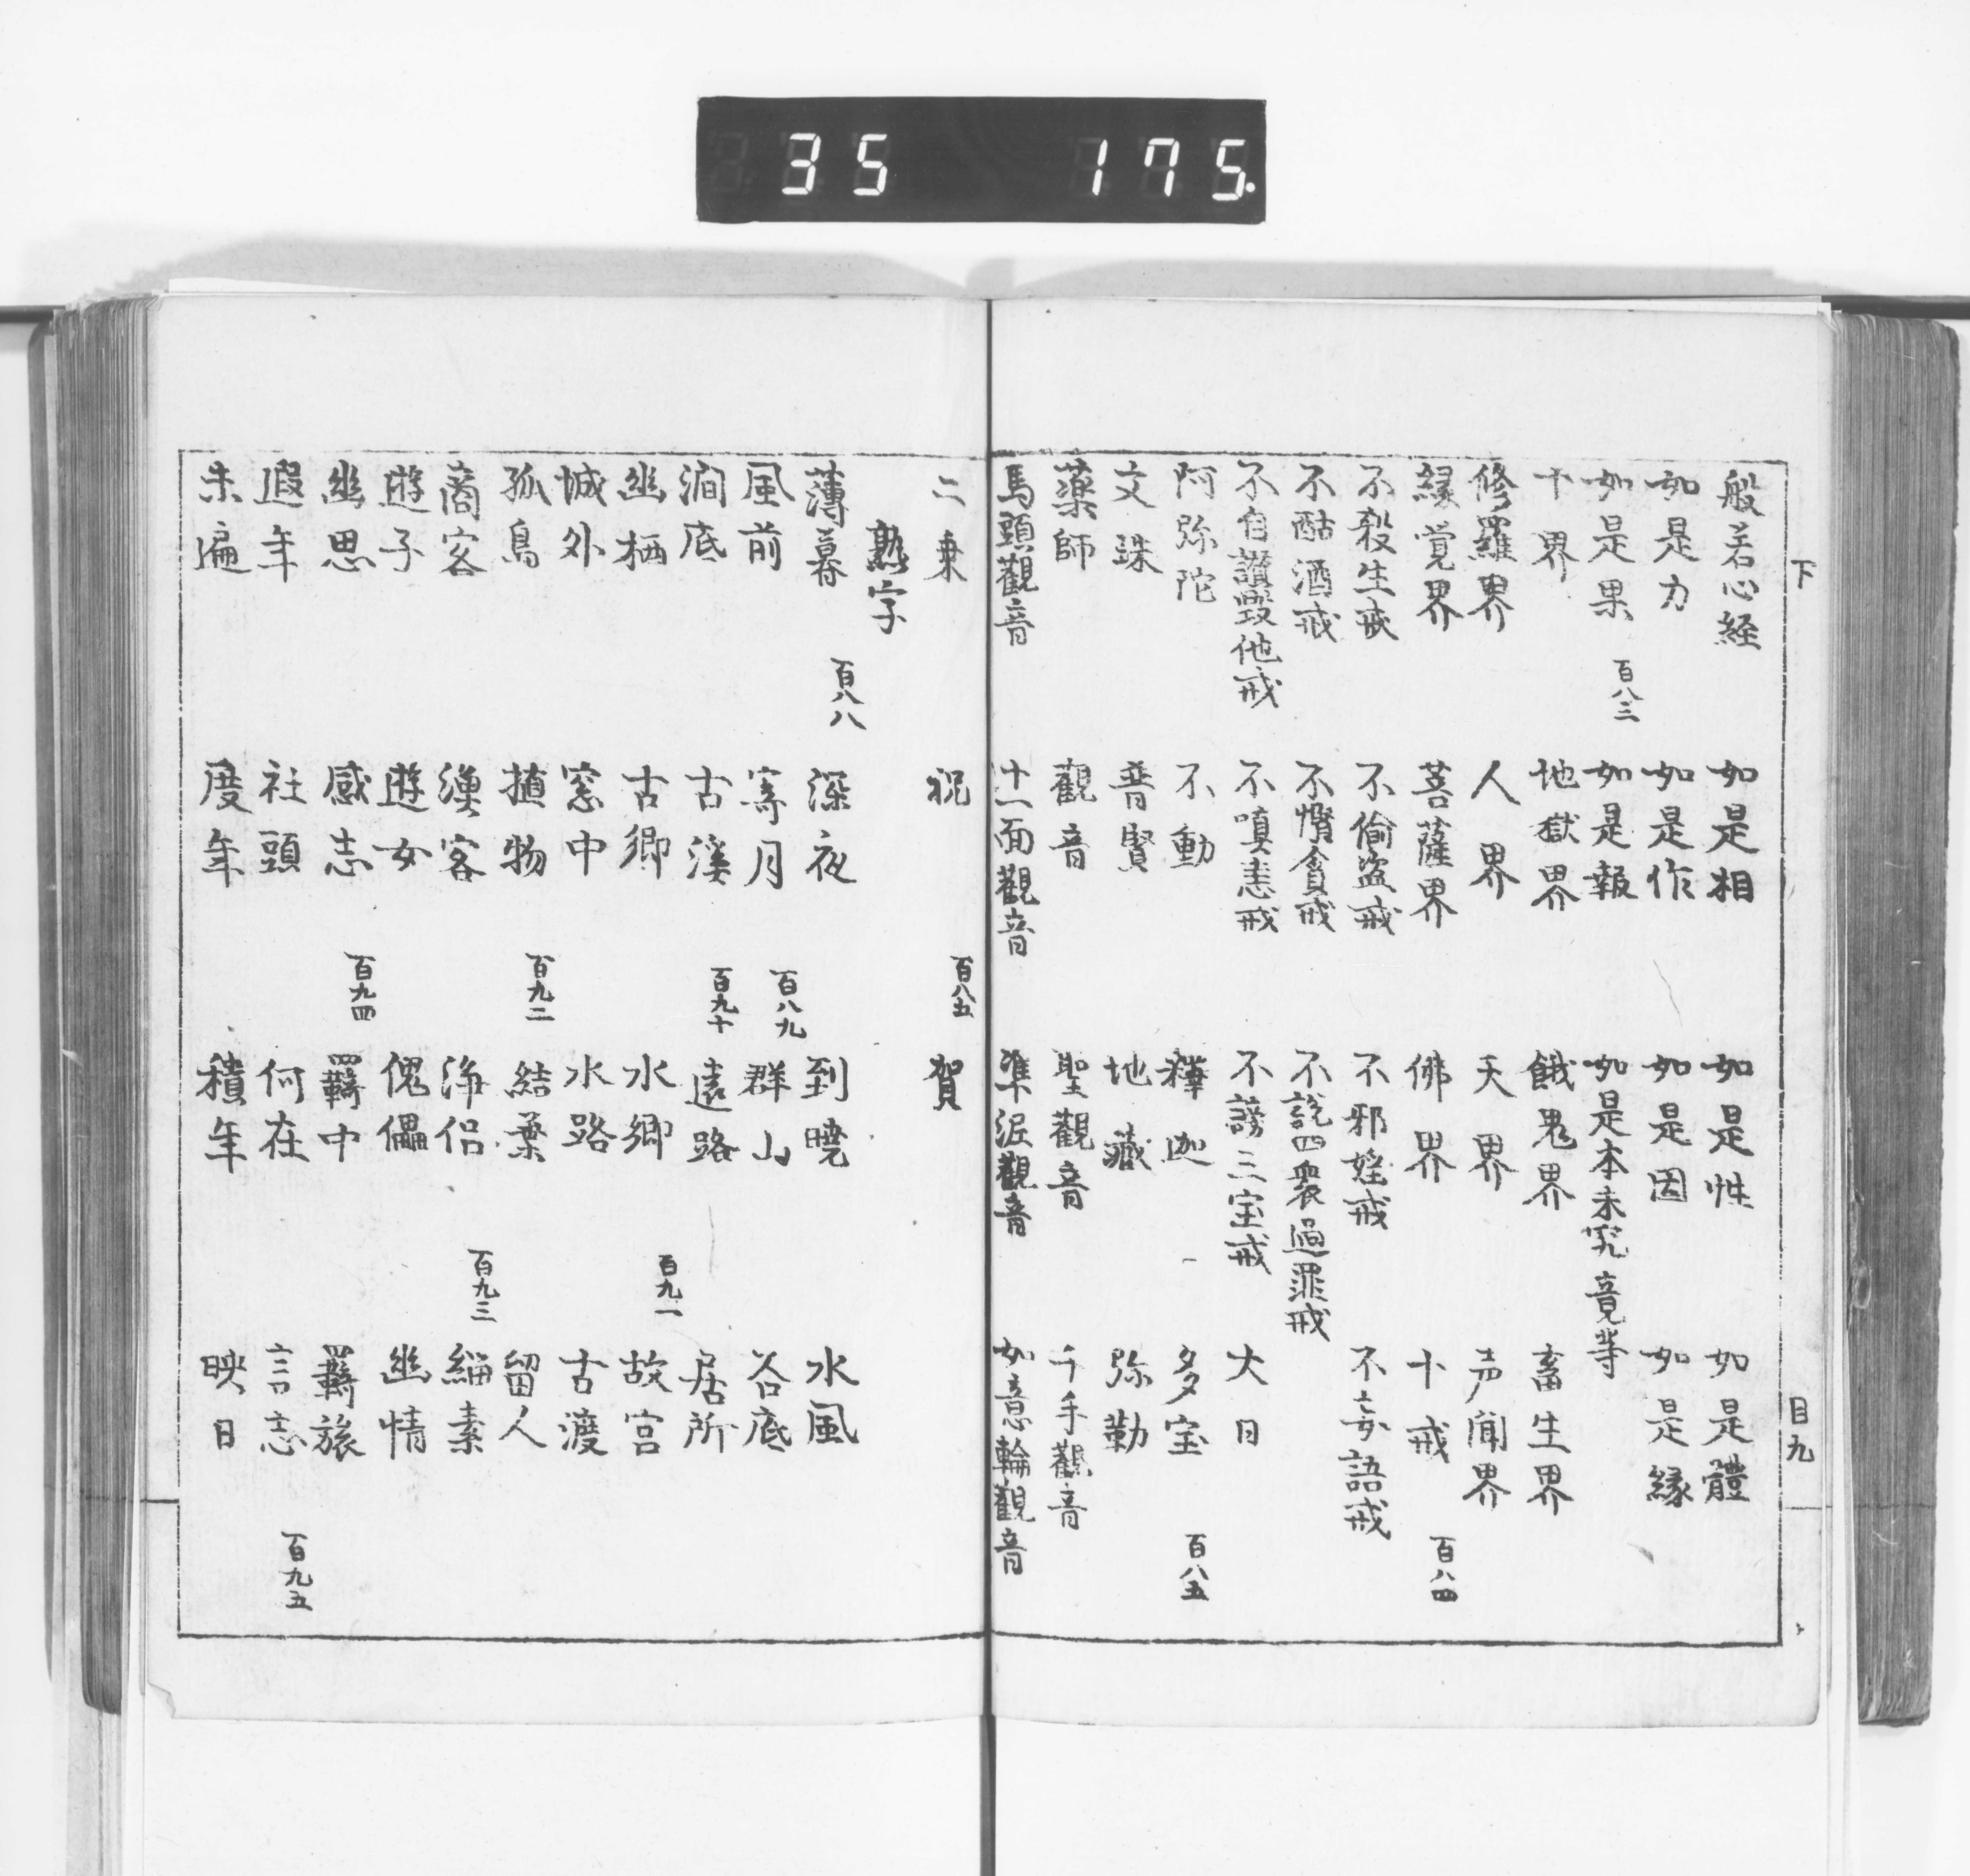 35 175.
下
目九
般若心経 如是相 如是性 如是體
如是力 如是作 如是因 如是縁
如是果 百八三 如是報 如是本末究竟等
十界 地獄界 餓鬼界 畜生界
修羅界 人界 天界 声聞界
縁覚界 菩薩界 佛界 十戒 百八四
不殺生戒 不偸盗戒 不邪婬戒 不妄語戒
不酤酒戒 不慳貪戒 不説四衆過罪戒
不自讃毀他戒 不嗔恚戒 不謗三宝戒 大日
阿弥陀 不動 釋迦 多宝 百八五
文珠 普賢 地藏 弥勒
藥師 觀音 聖觀音 千手觀音
馬頭觀音 十一面觀音 準泥觀音 如意輪觀音
二乗 祝 百八五 賀
熟字
薄暮 百八八 深夜 到曉 水風
風前 寄月 百八九 群山 谷底
澗底 古溪 百九十 遠路 居所
幽栖 古郷 水郷 百九一 故宮
城外 窓中 水路 古渡
孤鳥 植物 百九二 結葉 留人
商客 漁客 海侶 百九三 緇素
遊子 遊女 傀儡 幽情
幽思 感志 百九四 羇中 羇旅
遐年 社頭 何在 言志 百九五
未遍 度年 積年 映日